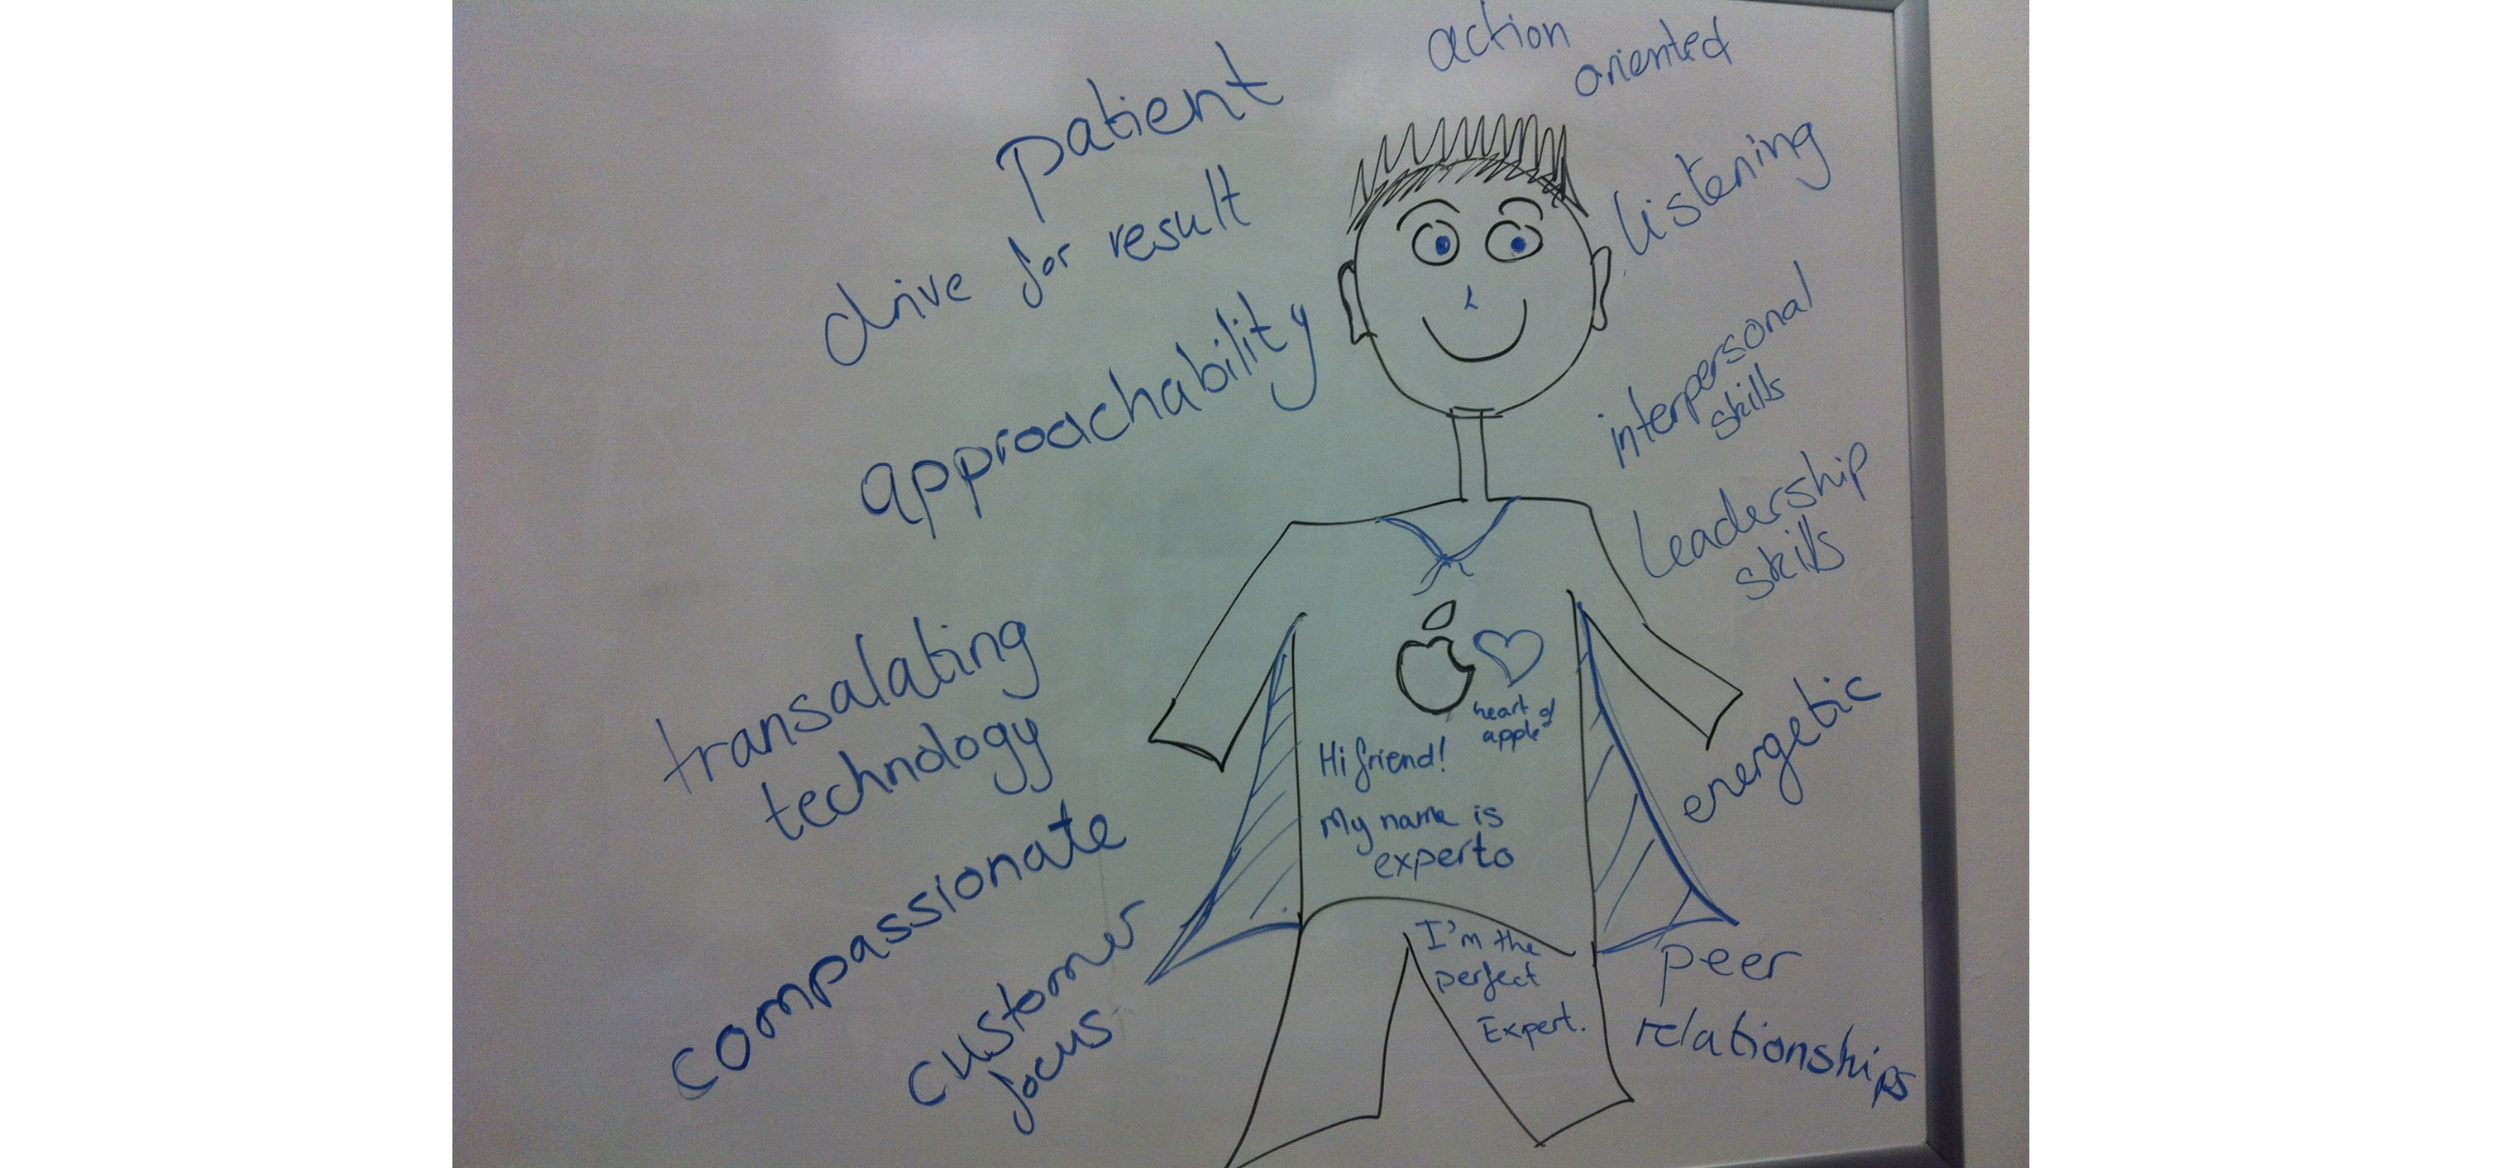 action
oriented
patient
drive for result
approachability
listening
interpersonal
skills
Leadership
skills
transalating
technology
compassionate
customer
focus
energetic
peer
relationships
heart of
apple
Hi friend!
My name is
experto
I'm the
perfect
Expert.